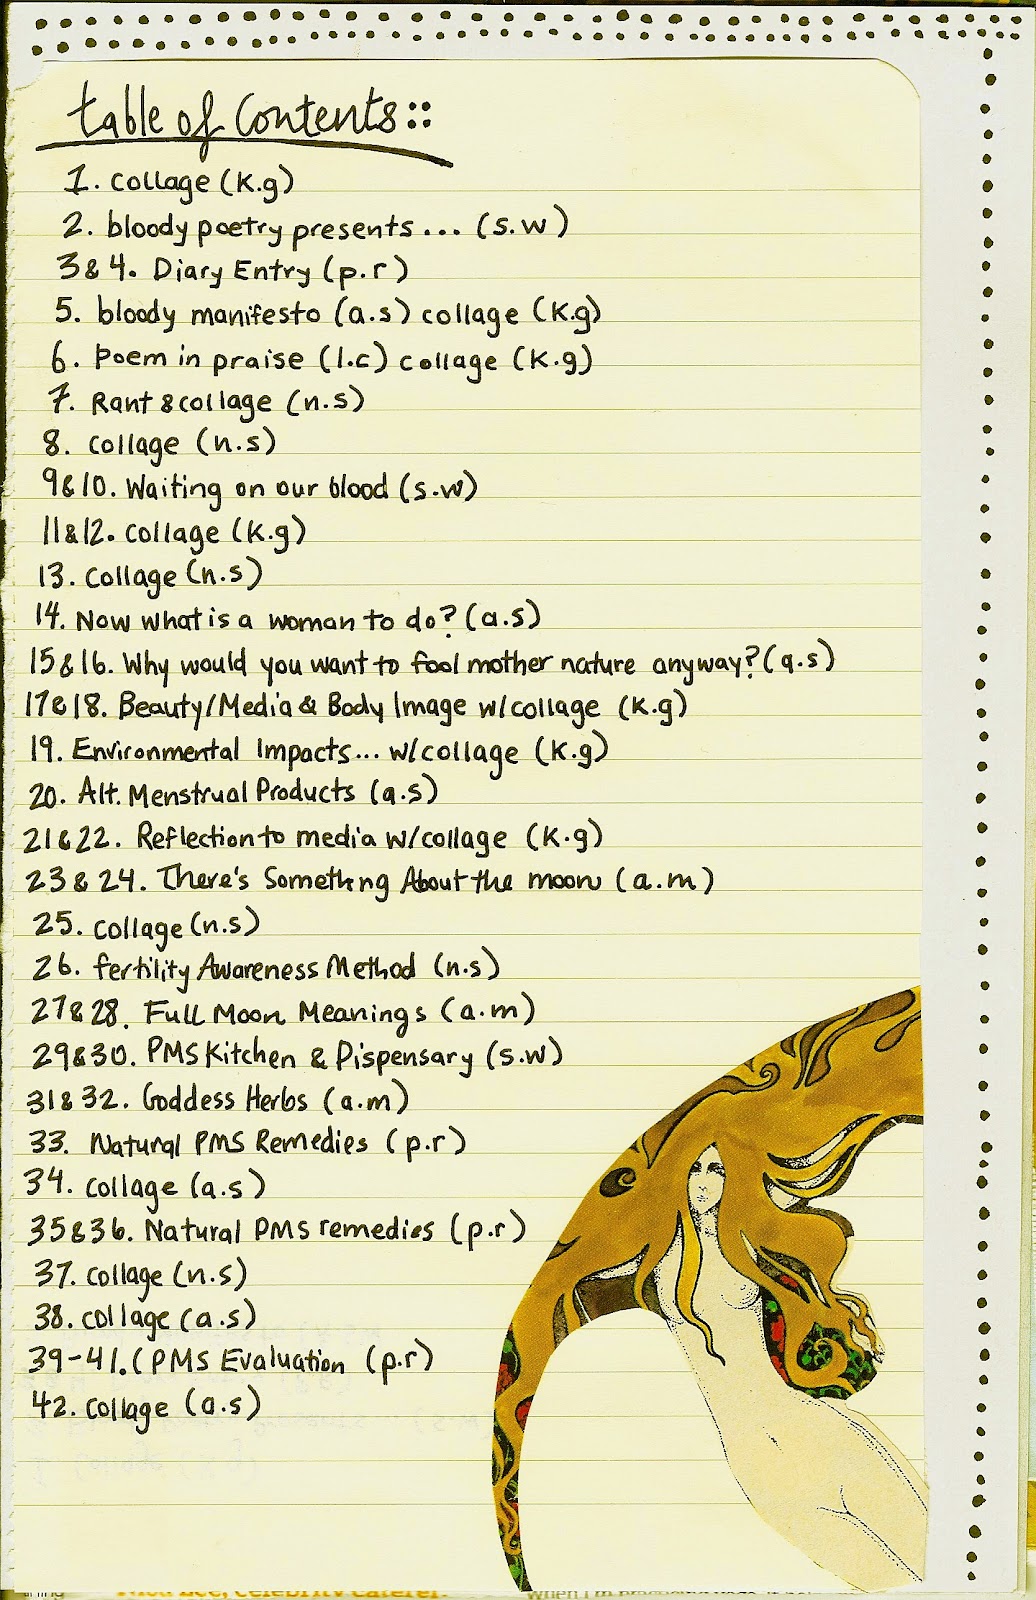 table of Contents::
1. collage (k.g)
2. bloody poetry presents... (s.w)
3&4. Diary Entry (p.r)
5. bloody manifesto (a.s) collage (k.g)
6. Poem in praise (l.c) collage (k.g)
7. Rant & collage (n.s)
8. collage (n.s)
9&10. Waiting on our blood (s.w)
11&12. collage (k.g)
13. collage (n.s)
14. Now what is a woman to do? (a.s)
15&16. Why would you want to fool mother nature anyway? (a.s)
17&18. Beauty/Media & Body Image w/collage (k.g)
19. Environmental Impacts... w/collage (k.g)
20. Alt. Menstrual Products (a.s)
21&22. Reflection to media w/collage (k.g)
23&24. There's Something About the moon (a.m)
25. collage (n.s)
26. fertility Awareness Method (n.s)
27&28. Full Moon Meanings (a.m)
29&30. PMS Kitchen & Dispensary (s.w)
31&32. Goddess Herbs (a.m)
33. Natural PMS Remedies (p.r)
34. collage (a.s)
35&36. Natural PMS remedies (p.r)
37. collage (n.s)
38. collage (a.s)
39-41. (PMS Evaluation (p.r)
42. collage (a.s)